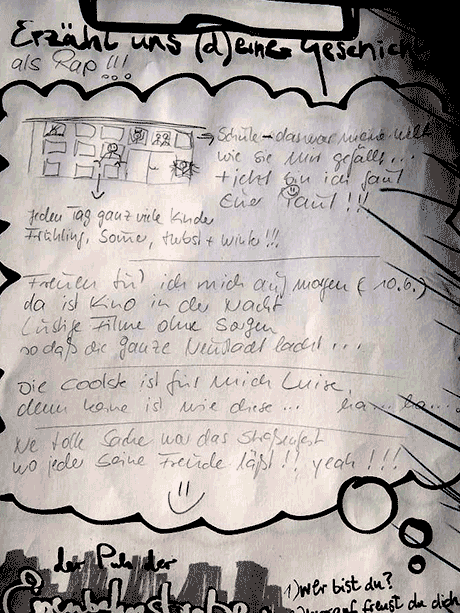 Erzähl uns (d)eine Geschich
als Rap!!!
→ Schule – das war meine Welt
wie sie mir gefällt...
+ jetzt bin ich fast
Euer !!!
Jeden Tag ganz viele Kinder
Frühling, Somer, Hebst + Winter!!!
Freuen tu' ich mich auf morgen (10.6.)
da ist Kino in der Nacht
Lustige Filme ohne Sorgen
so daß die ganze Neustadt lacht...
Die Coolste ist für mich Luise,
denn keine ist wie diese... ha... ha....
Ne tolle Sache war das Straßenfest
wo jeder seine Freude läßt!! yeah!!!
der Puls der
Eisenbahnstraße
1) Wer bist du?
freust du dich